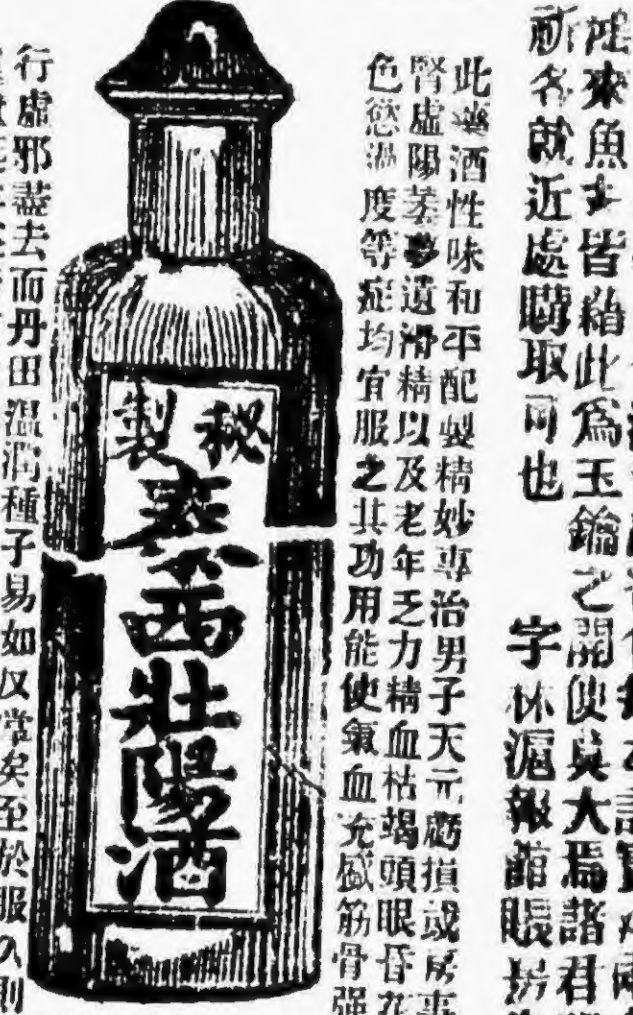 來魚去皆藉此爲玉鑰之開使眞大焉諸君
祈各就近處購取可也 字林滬報館賬房
此藥酒性味和平配製精妙專治男子天元虧損或房事
腎虛陽萎夢遺滑精以及老年乏力精血枯竭頭眼昏花
色慾過度等症均宜服之其功用能使氣血充盛筋骨强
秘製
泰西壯陽酒
行虛邪盡去而丹田温潤種子易如反掌矣至於服之則